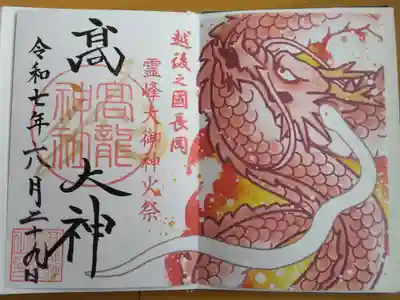 越後之國長岡
霊峰大御神火祭
髙大神
高龍
神社
令和七年六月二十九日